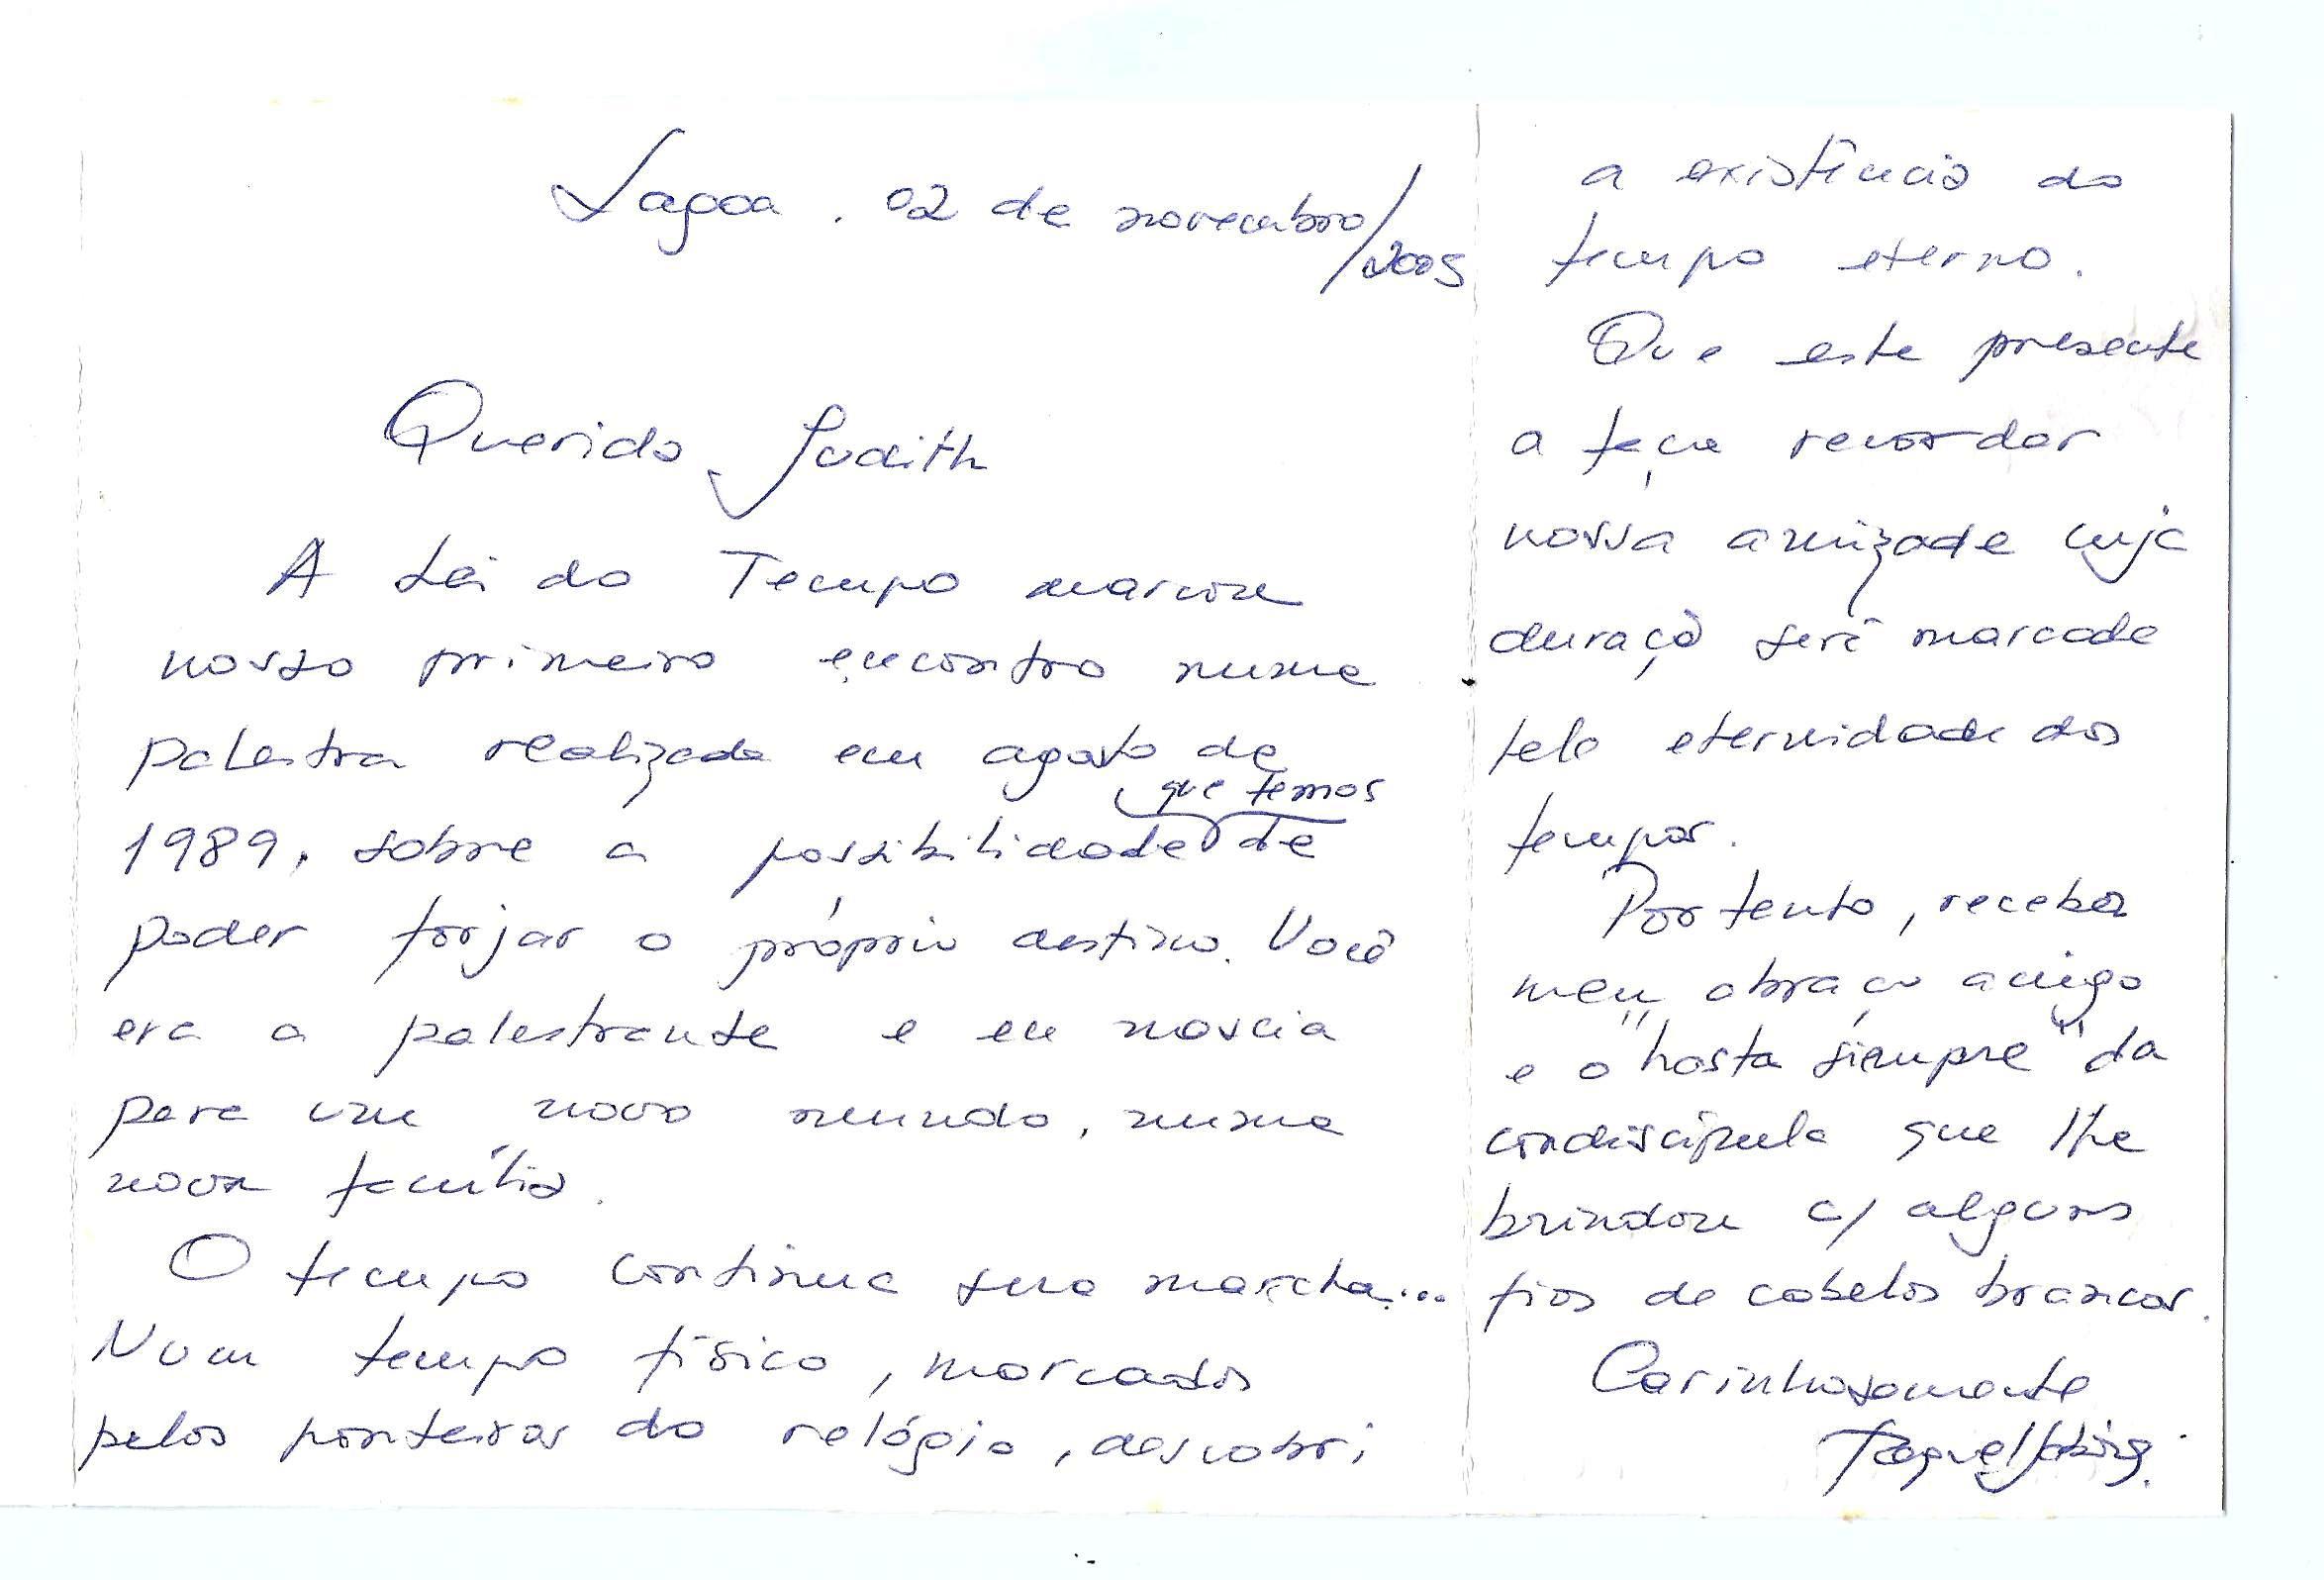 Lagoa, 02 de novembro/2005
Querida Judith
A Lei do Tempo marcou
nosso primeiro encontro numa
palestra realizada em agosto de
1989, sobre a possibilidade que temos de
poder forjar o próprio destino. Você
era a palestrante e eu nascia
para um novo mundo, numa
nova família.
O tempo continua sua marcha...
Num tempo físico, marcados
pelos ponteiros do relógio, descobri
a existência do
tempo eterno.
Que este presente
a faça recordar
nossa amizade cuja
duração será marcada
pela eternidade dos
tempos.
Portanto, receba
meu abraço amigo
e o "hasta siempre" da
condiscípula que lhe
brindou c/ alguns
fios de cabelos brancos.
Carinhosamente